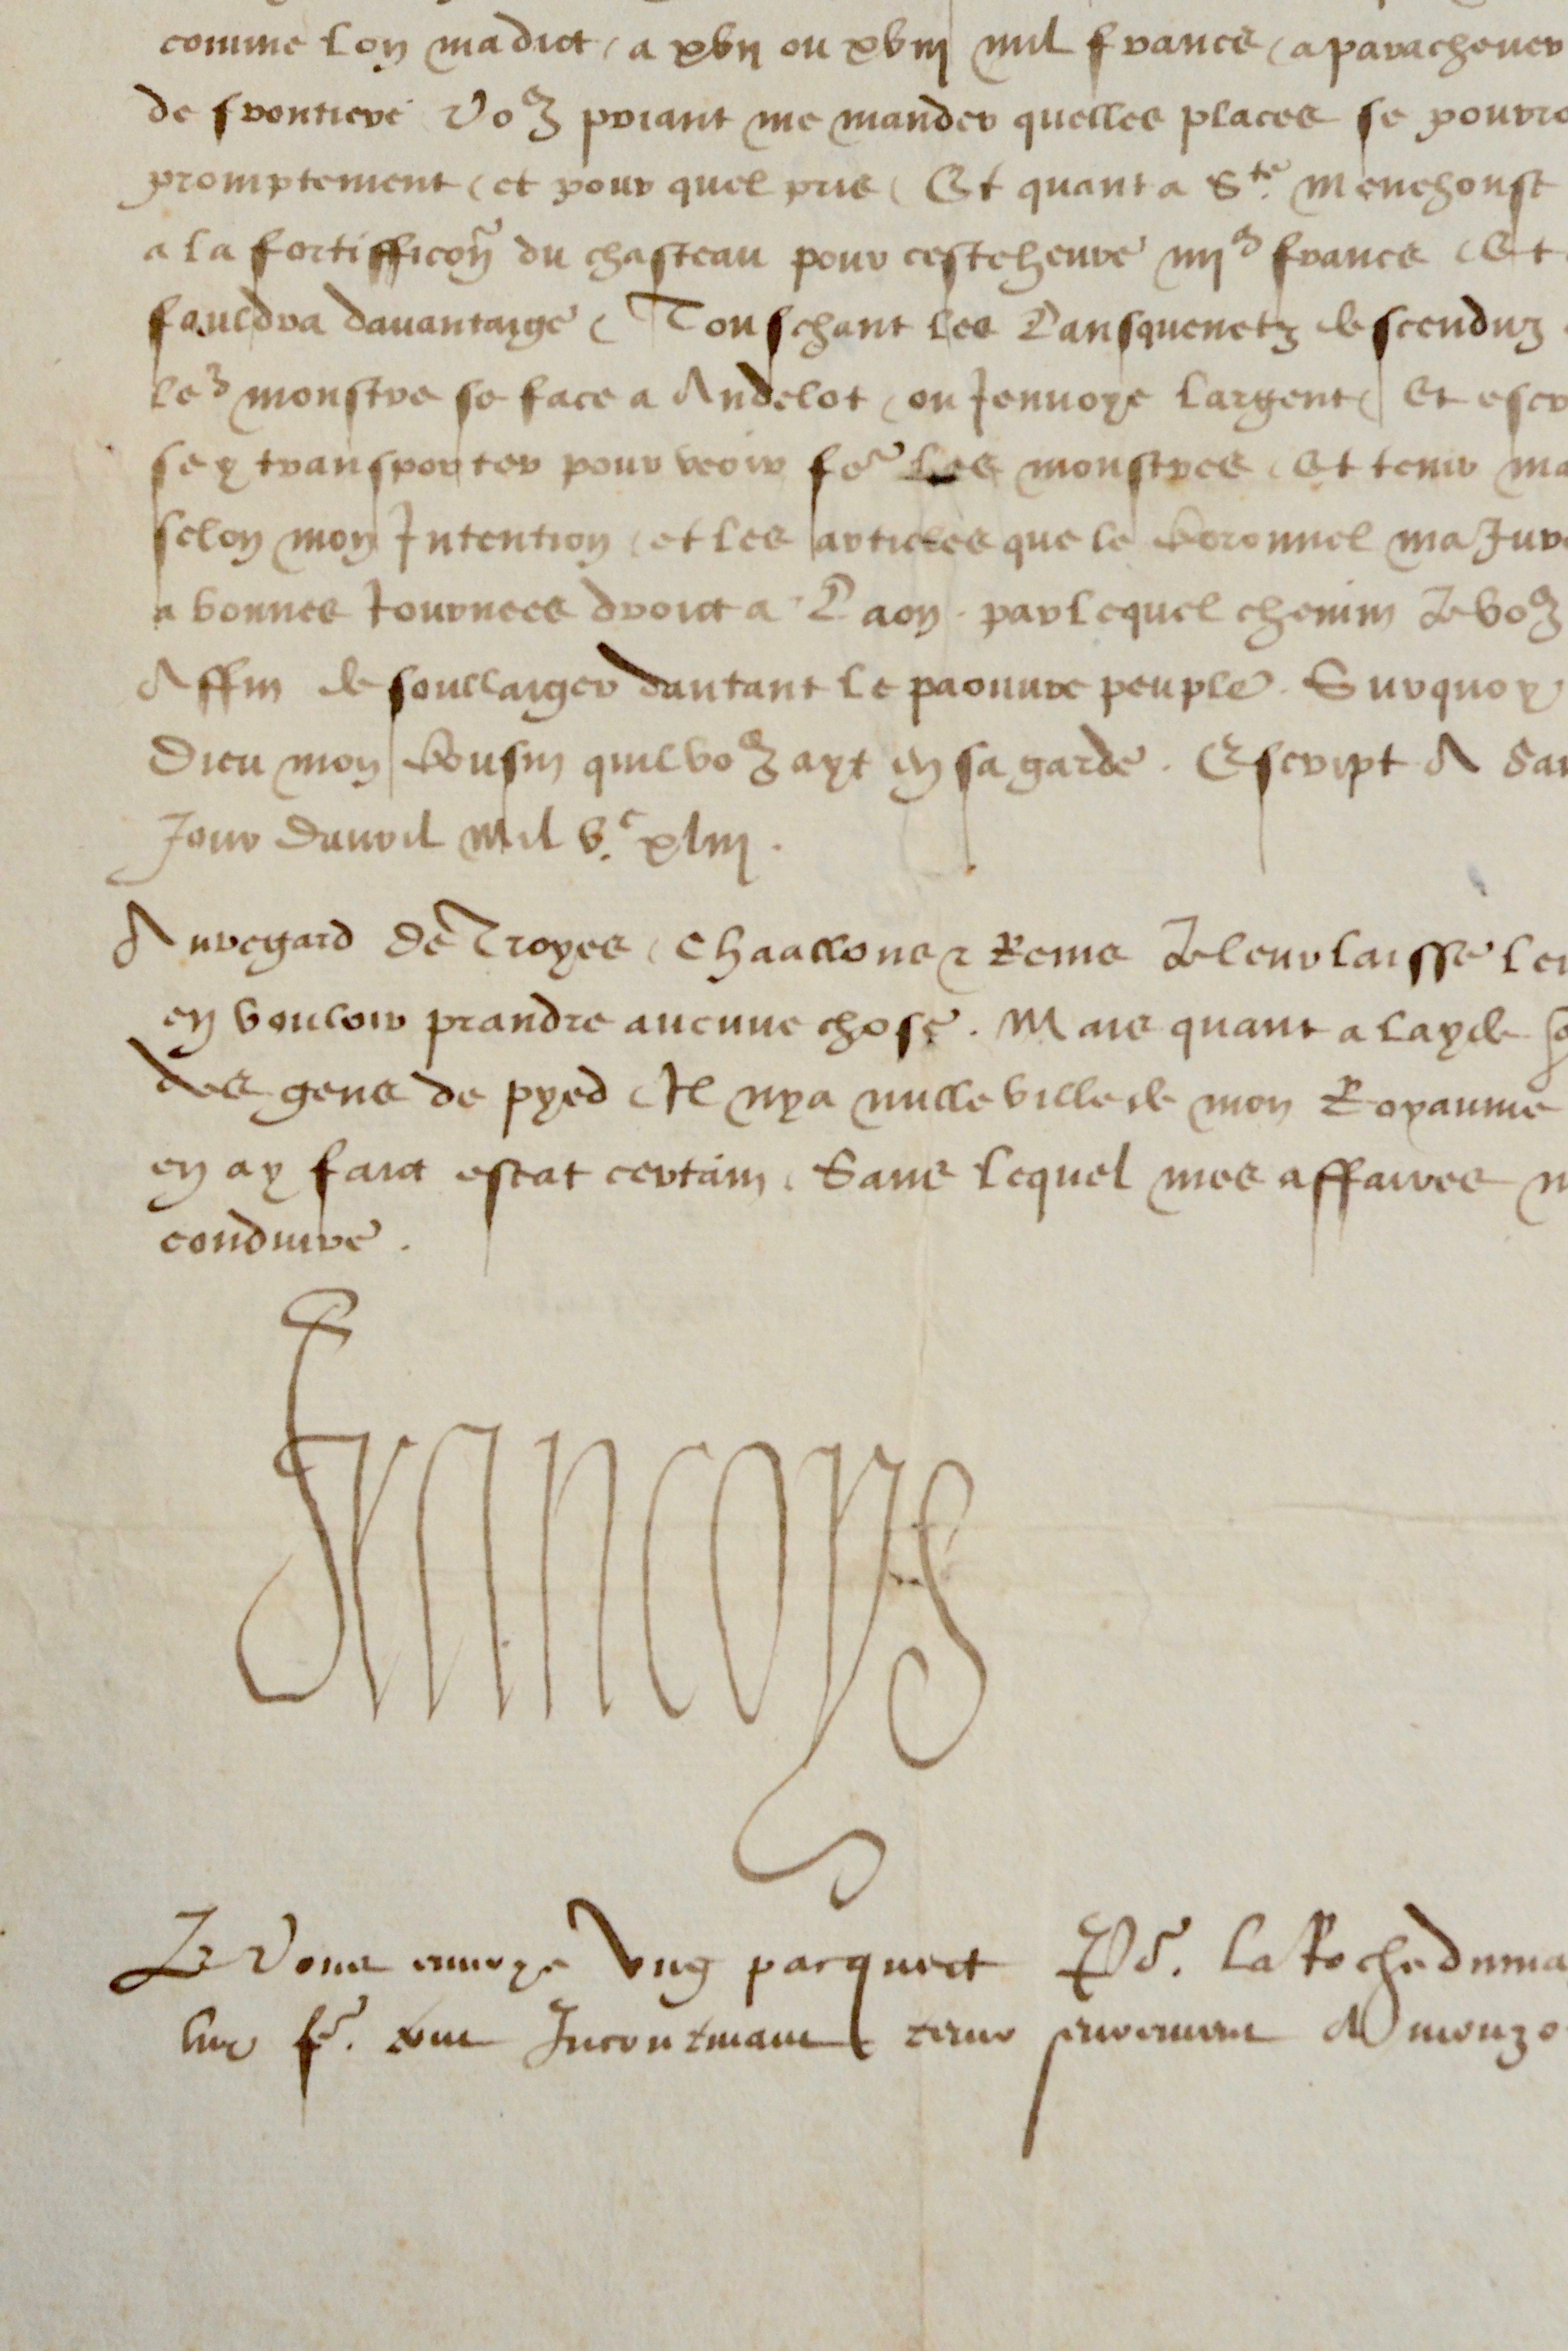 comme lon madict / a xvii ou xviii mil francs / a parachever
de frontiere Voz priant me mander quelles places se pourro
promptement / et pour quel pris / Et quant a Ste. Menehoust
a la fortifficon du chasteau pour cesteheure iiiim francs / Et
fauldra davantaige / Touschant les Lansquenetz descenduz
leur monstre se face a Andelot / ou Jenvoye largent / Et escr
sey transporter pour veoir fe les monstres / Et tenir ma
selon mon Intention / et les articles que le Coronnel ma Jure
a bonnes Journees droict a Laon . par lequel chemin Je voz
Affin de soullaiger dautant le paouvre peuple . Surquoy
Dieu mon Cousin quil voz ayt en sa garde . Escript A
Jour Davril Mil vc. xliii .
Auregard De Troyes / Chaallons & Reims Je leur laisse
en vouloir prandre aucune chose . Mais quant a layde
des gens de pyed / Il nya nulle ville de mon Royaume
en ay faict estat certain / Sans lequel mes affaires
conduire .
Francoys
Je Vous envoye Ung pacquect Po. La Rochedumai
fe. Incontinant tenir seurement A mouzo